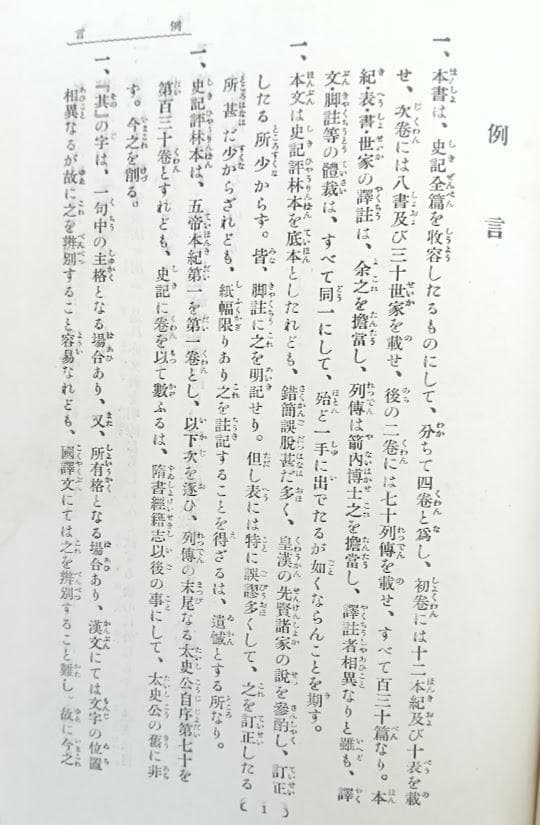 例言
例言
一、本書は、史記全篇を收容したるものにして、分ちて四卷と爲し、初卷には十二本紀及び十表を載
せ、次卷には八書及び三十世家を載せ、後の二卷には七十列傳を載せ、すべて百三十篇なり。本
紀・表・書・世家の譯註は、余之を擔當し、列傳は箭內博士之を擔當し、譯註者相異なりと雖も、譯
文・脚註等の體裁は、すべて同一にして、殆ど一手に出でたるが如くならんことを期す。
一、本文は史記評林本を底本としたれども、錯簡誤脫甚だ多く、皇漢の先賢諸家の說を參酌し、訂正
したる所少からず。皆、脚註に之を明記せり。但し表には特に誤謬多くして、之を訂正したる
所甚だ少からざれども、紙幅限りあり之を註記することを得ざるは、遺憾とする所なり。
一、史記評林本は、五帝本紀第一を第一卷とし、以下次を逐ひ、列傳の末尾なる太史公自序第七十を
第百三十卷とすれども、史記に卷を以て數ふるは、隋書經籍志以後の事にして、太史公の舊に非
ず。今之を削る。
一、『其』の字は、一句中の主格となる場合あり、又、所有格となる場合あり、漢文にては文字の位置
相異なるが故に之を辨別すること容易なれども、國譯文にては之を辨別すること難し、故に今之
(1)